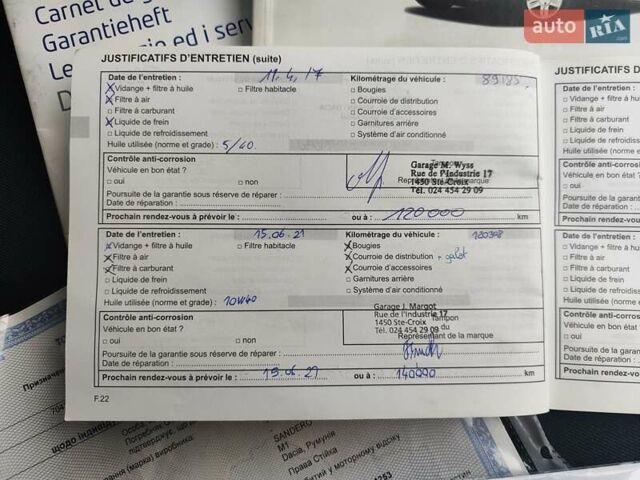 Carnet de g
Garantieheft
JUSTIFICATIFS D'ENTRETIEN (suite)
Date de l'entretien : 11.4.17 Kilométrage du véhicule : 89185
Vidange + filtre à huile Filtre habitacle Bougies
Filtre à air Courroie de distribution
Filtre à carburant Courroie d'accessoires
Liquide de frein Garnitures arrière
Liquide de refroidissement Système d'air conditionné
Huile utilisée (norme et grade) : 5/40
Contrôle anti-corrosion
Véhicule en bon état ?
oui non
Garage M. Wyss
Rue de l'Industrie 17
1450 Ste-Croix
Tél. 024 454 29 09
Poursuite de la garantie sous réserve de réparer :
Date de réparation :
Prochain rendez-vous à prévoir le : ou à : 120000 km
Date de l'entretien : 15.06.21 Kilométrage du véhicule :
Vidange + filtre à huile Filtre habitacle Bougies
Filtre à air Courroie de distribution + galet
Filtre à carburant Courroie d'accessoires
Liquide de frein Garnitures arrière
Liquide de refroidissement Système d'air conditionné
Huile utilisée (norme et grade) : 10W40
Contrôle anti-corrosion
Véhicule en bon état ?
oui non
Garage J. Margot
Rue de l'Industrie 17
1450 Ste-Croix
Tél. 024 454 29 09
Tampon
du
Représentant de la marque
Poursuite de la garantie sous réserve de réparer :
Date de réparation :
Prochain rendez-vous à prévoir le : ou à : 140000 km
F.22
JUSTIFICATIFS D'E
Date de l'entretien :
Vidange + filtre à hu
Filtre à air
Filtre à carburant
Liquide de frein
Liquide de refroidi
Huile utilisée (norme
Contrôle anti-corro
Véhicule en bon état
oui
Poursuite de la gara
Date de réparation
Prochain rendez-v
Date de l'entretien
Vidange + filtre à
Filtre à air
Filtre à carburant
Liquide de frein
Liquide de refroi
Huile utilisée (norm
Contrôle anti-cor
Véhicule en bon é
oui
Poursuite de la ga
Date de réparatio
Prochain rendez
SANDERO
M1
Dacia, Румунія
Права Стійка
auto RIA.com